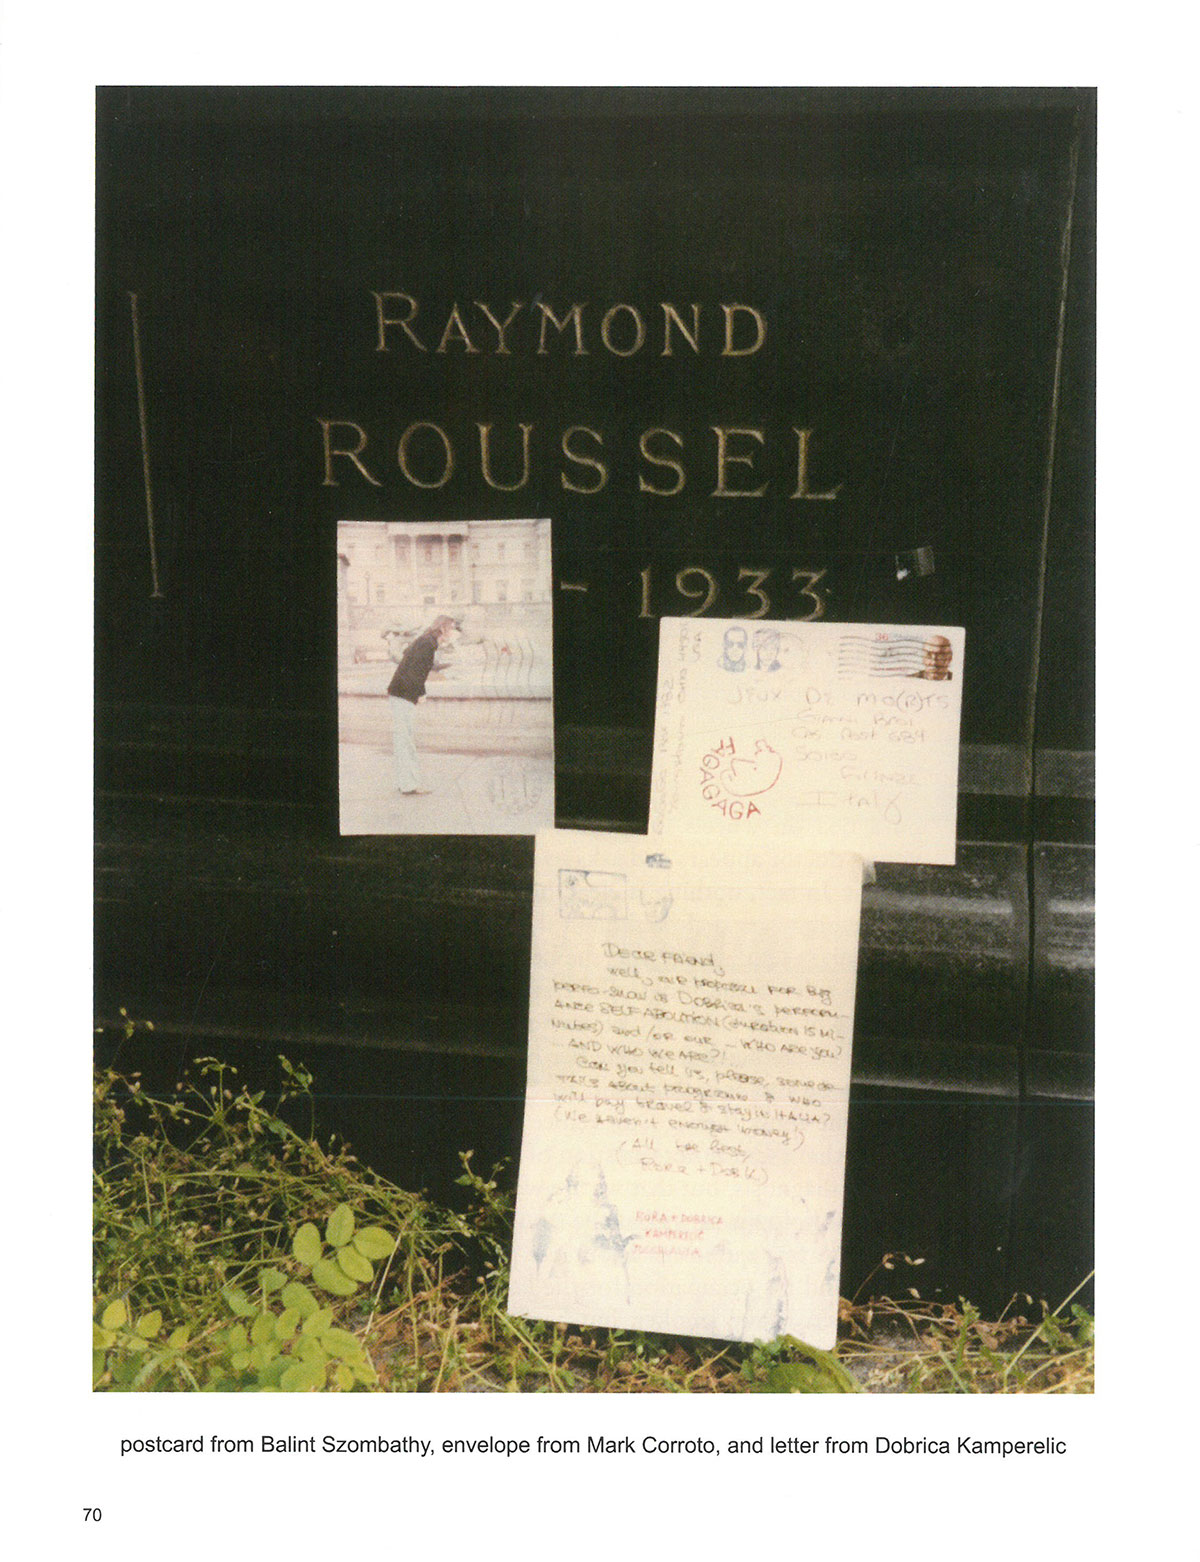 RAYMOND
ROUSSEL
- 1933
36
USA
JEUX DE MO(R)TS
684
50100
Italy
AGAGAGA
DEAR FRIEND,
Well, our proposal FOR Big
PERFO-SHOW is DOBRICA'S PERFORM-
ANCE SELF ABOLITION (duration 15 mi-
nutes) and/or our - WHO ARE you?
- AND WHO WE ARE?!
Can you tell us, please, some de-
TAILS ABOUT programme & WHO
will pay travel & stay in ITALIA?
(We haven't enough money!)
(All the Best,
RORA + DOBICA)
RORA + DOBRICA
KAMPERELIĆ
postcard from Balint Szombathy, envelope from Mark Corroto, and letter from Dobrica Kamperelic
70